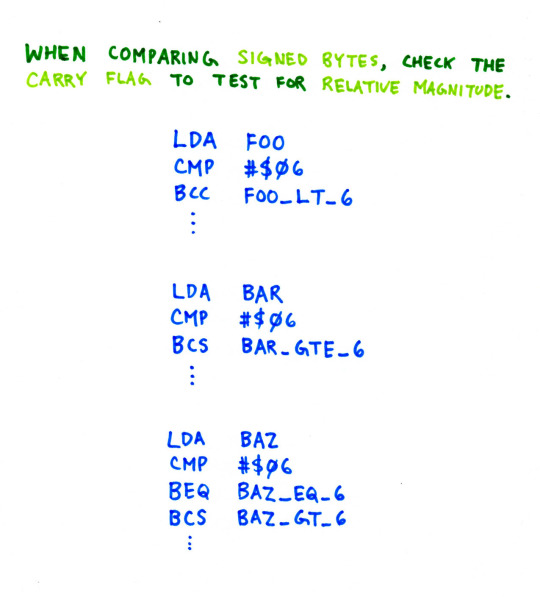 WHEN COMPARING SIGNED BYTES, CHECK THE
CARRY FLAG TO TEST FOR RELATIVE MAGNITUDE.
LDA FOO
CMP #$06
BCC FOO_LT_6
⋮
LDA BAR
CMP #$06
BCS BAR_GTE_6
⋮
LDA BAZ
CMP #$06
BEQ BAZ_EQ_6
BCS BAZ_GT_6
⋮